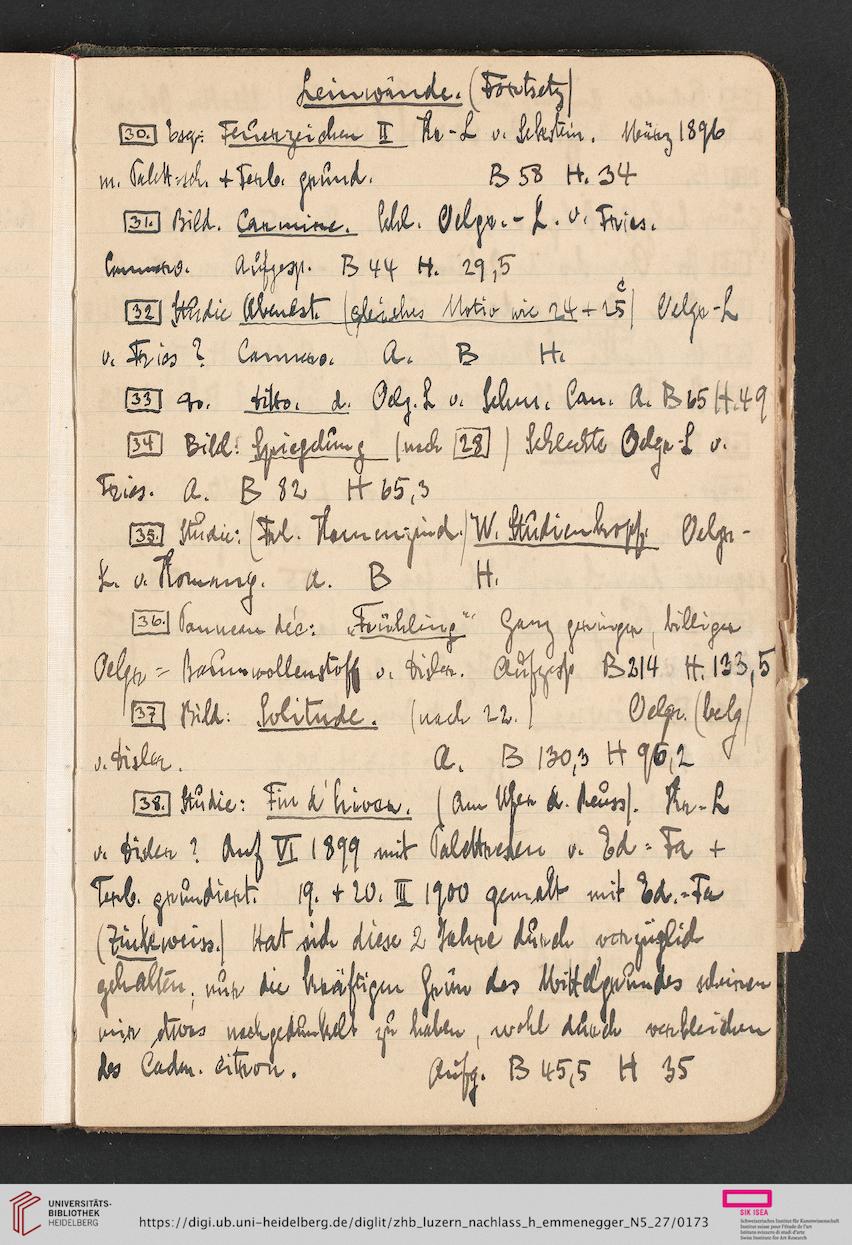 Leinwände. (Fortsetz)
30. Esq: Feuerzeichen II Kr-L v. März 1896
m. + Terb. grund. B 58 H. 34
31. Bild. Carmine. Schl. Oelgr.-L. v. Fries.
Aufgesp. B 44 H. 29,5
32 Studie Abendst. (gleiches Motiv wie 24 + 25 c) Oelgr-L
v. Fries? A. B H.
33 do. ditto. d. Oelg. L v. Schm. Cam. A. B 65 H. 49
34 Bild: Spiegelung (nach 28) Schlechte Oelgr-L v.
Fries. A. B 82 H 65,3
35. Studie: (Frl. ) W. Studienkopf. Oelgr-
L. v. A. B H.
36. Panneau déc: „Frühling" Ganz geringer, billiger
Oelgr = Baumwollenstoff v. Disler. Aufgesp B 214 H. 133,5
37 Bild: Solitude. (nach 22.) Oelgr. (belg)
v. Disler. A. B 130,3 H 96,2
38. Studie: Fin d'hiver. (Am Ufer d. Reuss). Kr-L
v. Disler? Auf VI 1899 mit Palettresten v. Ed = Fa +
Terb. grundiert. 19. + 20. III 1900 gemalt mit Ed.=Fa
(Zinkweiss.) Hat sich diese 2 Jahre durch vorzüglich
gehalten; nur die kräftigen Grün des Mittelgrundes scheinen
mir etwas nachgedunkelt zu haben, wohl durch verbleichen
des Cadm. citron. Aufg. B 45,5 H 35
UNIVERSITÄTS-
BIBLIOTHEK
HEIDELBERG
https://digi.ub.uni-heidelberg.de/diglit/zhb_luzern_nachlass_h_emmenegger_N5_27/0173
SIK ISEA
Schweizerisches Institut für Kunstwissenschaft
Institut suisse pour l'étude de l'art
Istituto svizzero di studi d'arte
Swiss Institute for Art Research